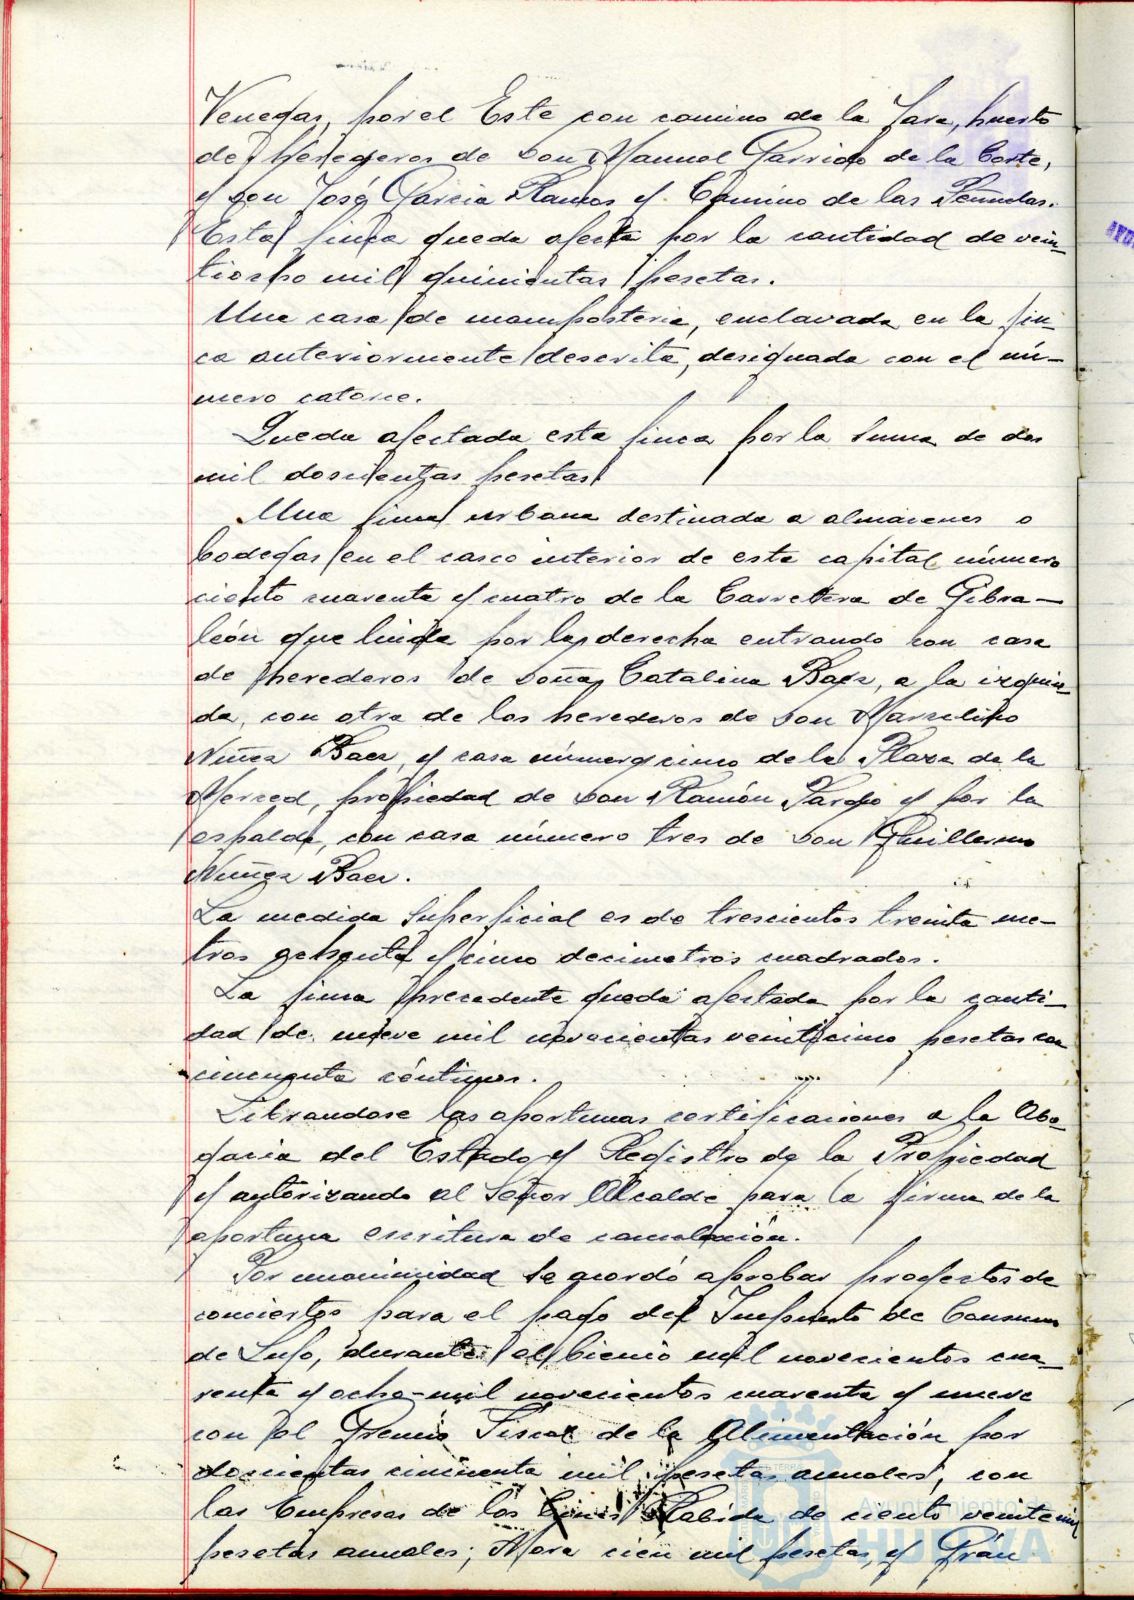 Venegas, por el Este con camino de la Jara, huerto
de Herederos de Don Manuel Garrido de la Corte,
y don José Garcia Ramos y Camino de las Peñuelas.
Esta finca queda afecta por la cantidad de vein-
tiocho mil quinientas pesetas.
Una casa de mamposteria, enclavada en la fin-
ca anteriormente descrita, designada con el nú-
mero catorce.
Queda afectada esta finca por la suma de dos
mil doscientas pesetas.
Una finca urbana destinada a almacenes o
bodegas en el casco interior de esta capital, número
ciento cuarenta y cuatro de la Carretera de Gibra-
león que linda por la derecha entrando con casa
de herederos de Doña Catalina Baez, a la izquier-
da, con otra de los herederos de Don Marcelino
Nuñez Baez, y casa número cinco de la Plaza de la
Merced, propiedad de Don Ramón Vargo y por la
espalda, con casa número tres de Don Guillermo
Nuñez Baez.
La medida superficial es de trescientos treinta me-
tros ochenta y cinco decimetros cuadrados.
La finca precedente queda afectada por la canti-
dad de nueve mil novecientas veinticinco pesetas con
cincuenta céntimos.
Librandose las oportunas certificaciones a la Abo-
gacia del Estado y Registro de la Propiedad
y autorizando al Señor Alcalde para la firma de la
oportuna escritura de cancelación.
Por unanimidad se acordó aprobar proyectos de
conciertos para el pago del Impuesto de Consumo
de Lujo, durante el bienio mil novecientos cua-
renta y ocho-mil novecientos cuarenta y nueve
con el Gremio Fiscal de la Alimentación por
doscientas cincuenta mil pesetas anuales, con
las Empresas de los Cines Rabida de ciento veinte mil
pesetas anuales; Mora cien mil pesetas, y Gran
Ayuntamiento de
HUELVA